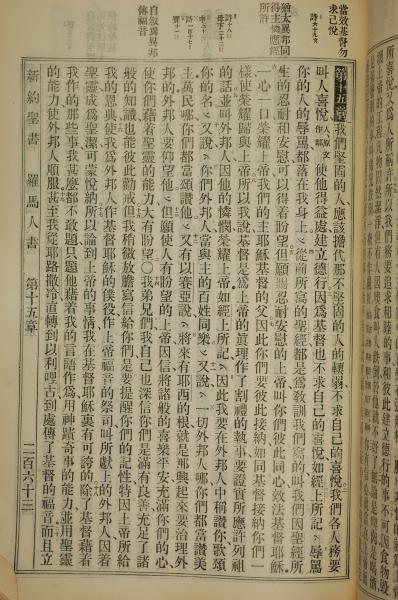 當效基督勿
求己悅
詩六十九九
猶太異邦同
得主憐應經
所許
自叙爲異邦
傳福音
第十五章 我們堅固的人應該擔代那不堅固的人的輭弱不求自己的喜悅我們各人務要
叫人喜悅人原文作鄰使他得益處建立德行因爲基督也不求自己的喜悅如經上所記辱罵
你的人的辱罵都落在我身上從前所寫的聖經都是爲教訓我們寫的叫我們因聖經所
生的忍耐和安慰可以得着盼望但願賜忍耐安慰的上帝叫你們彼此同心效法基督耶穌
一心一口榮耀上帝我們的主耶穌基督的父因此你們要彼此接納如同基督接納你們一
樣使榮耀歸與上帝所以我說基督是爲上帝的眞理作了割禮的執事要證實所應許列祖
的話並叫外邦人因他的憐憫榮耀上帝如經上所記因此我要在外邦人中稱讚你歌頌
你的名又說你們外邦人當與主的百姓同樂又說一切外邦人哪你們都當讚美
主萬民哪你們都當頌讚他又有以賽亞說將來有耶西的根就是那興起來要治理外
邦的外邦人要仰望他但願使人有盼望的上帝因信將諸般的喜樂平安充滿你們的心
使你們藉着聖靈的能力大有盼望○我弟兄們我自己也深信你們是滿有良善充足了諸
般的知識也能彼此勸戒但我稍微放膽寫信給你們是要提醒你們的記性特因上帝所給
我的恩典使我爲外邦人作基督耶穌的僕役作上帝福音的祭司叫所獻上的外邦人因着
聖靈成爲聖潔可蒙悅納所以論到上帝的事情我在基督耶穌裏有可誇的除了基督藉着
我作的那些事我甚麼都不敢題只題他藉着我的言語作爲用神蹟奇事的能力並用聖靈
的能力使外邦人順服甚至我從耶路撒冷直轉到以利哩古到處傳了基督的福音而且立
新約聖書 羅馬人書 第十五章 二百六十二